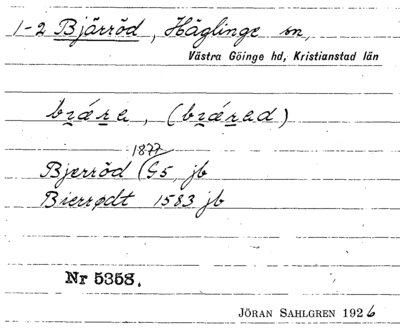 1-2 Bjärröd, Häglinge sn,
Västra Göinge hd, Kristianstad län
bɪ̯ǽʀ̱ə, (bɪ̯ǽʀ̱əd)
1877
Bjerröd (G5, jb
Bierrødt 1583 jb
Nr 5358.
JÖRAN SAHLGREN 1926